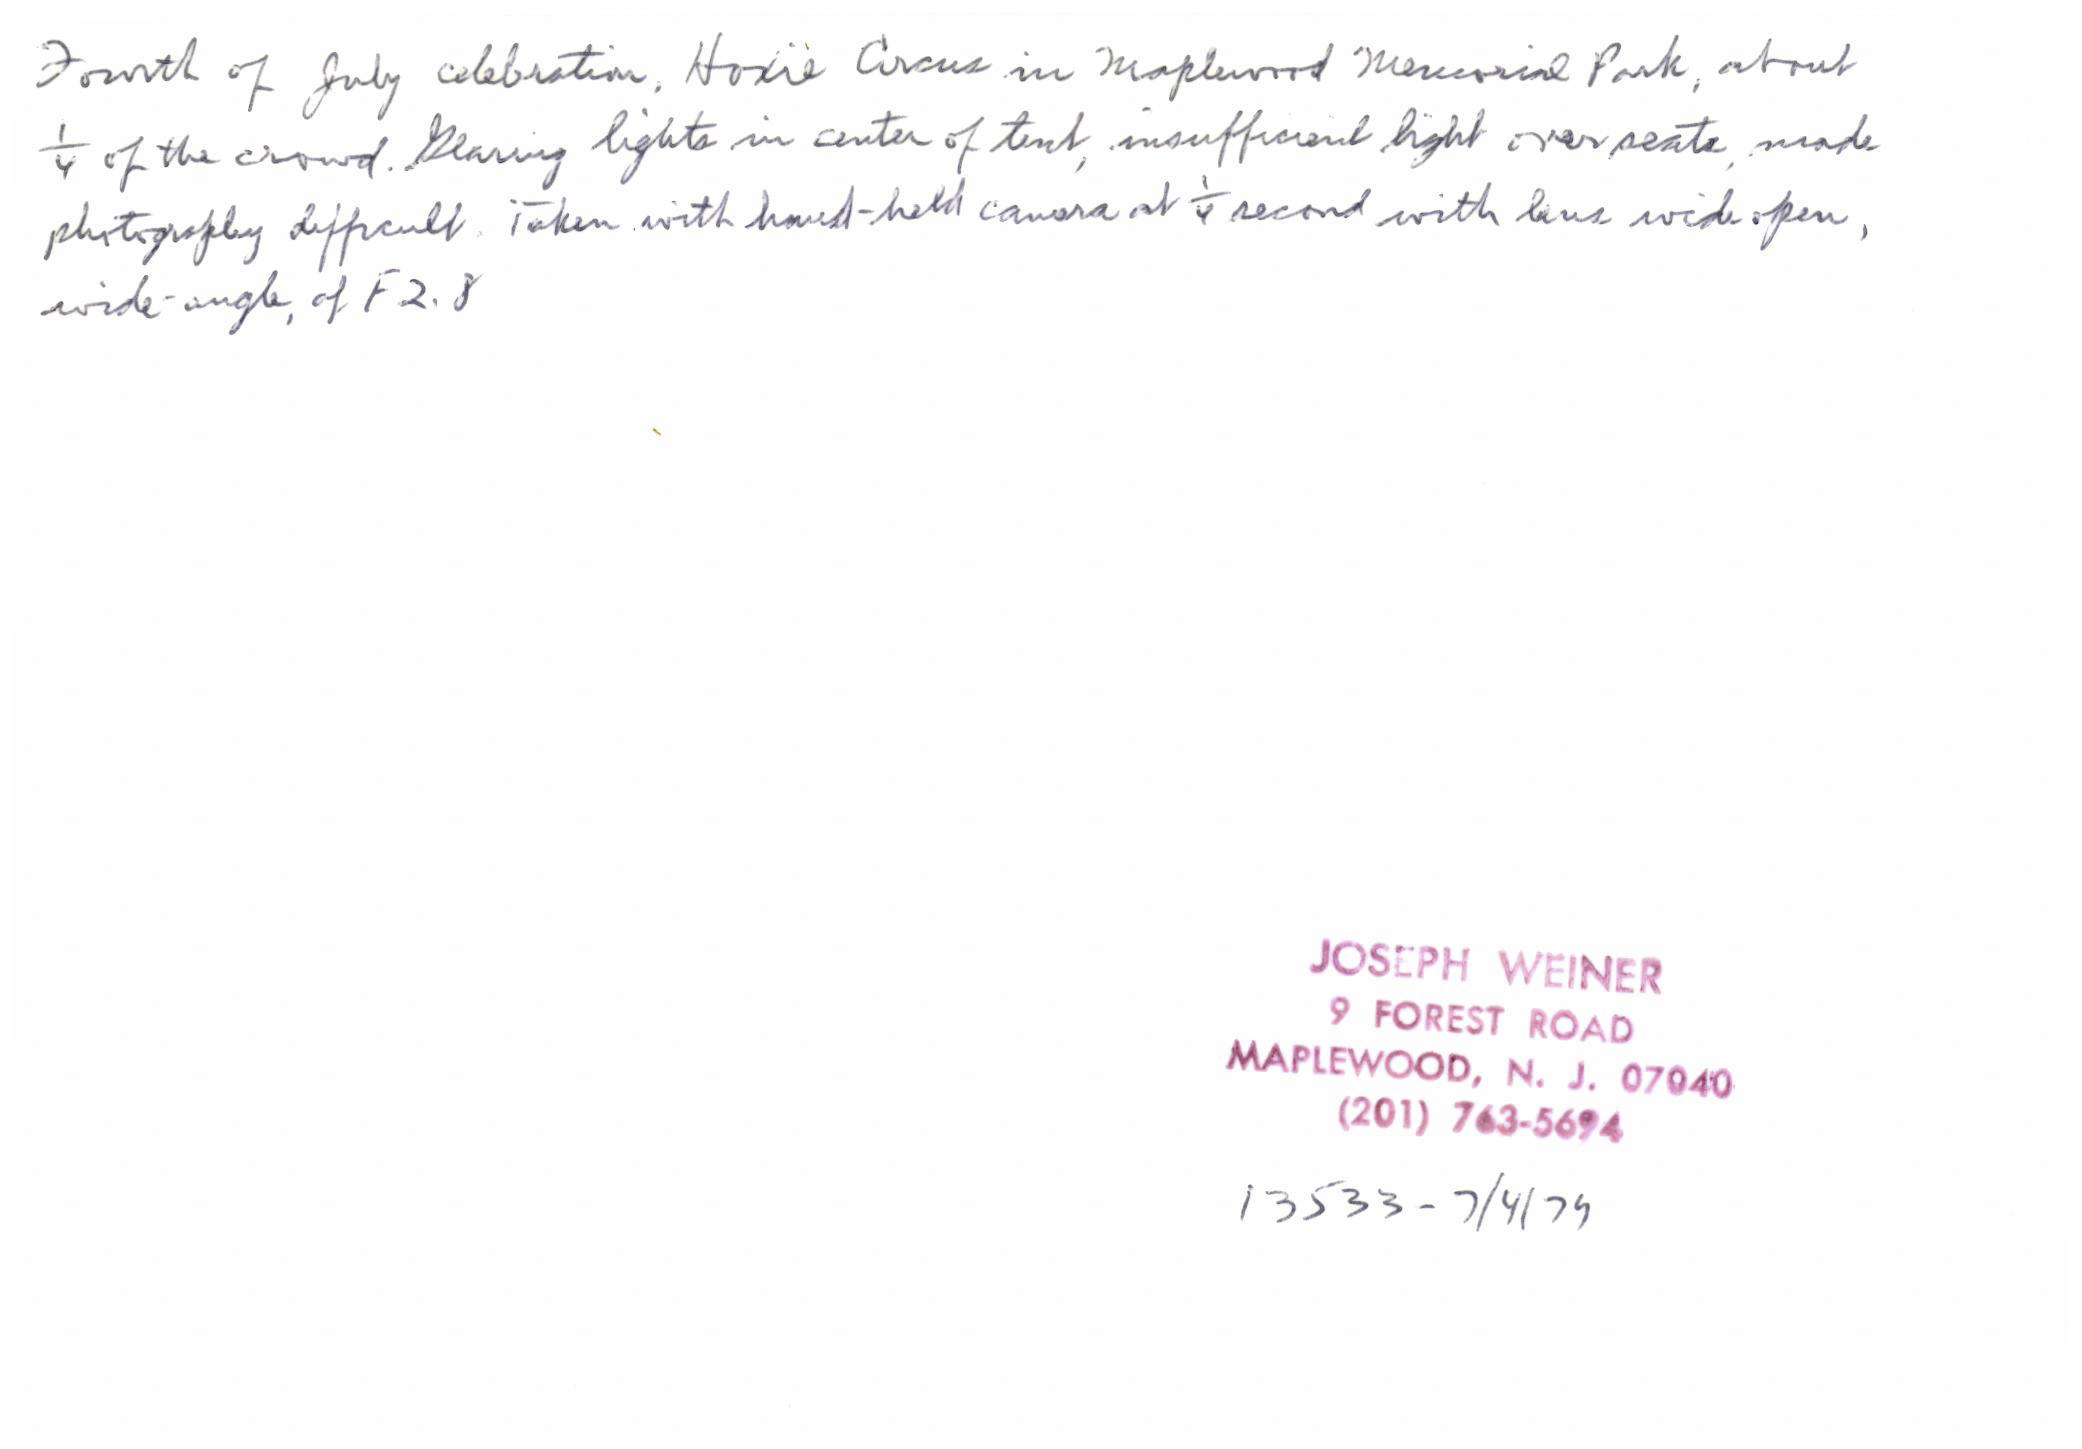 Fourth of July celebration, Hoxie Circus in Maplewood Memorial Park, about
1/4 of the crowd. Glaring lights in center of tent, insufficient light over seats, made
photography difficult. Taken with hand-held camera at 1/4 second with lens wide open,
wide-angle, of F 2.8
JOSEPH WEINER
9 FOREST ROAD
MAPLEWOOD, N. J. 07040
(201) 763-5694
13533 - 7/4/79